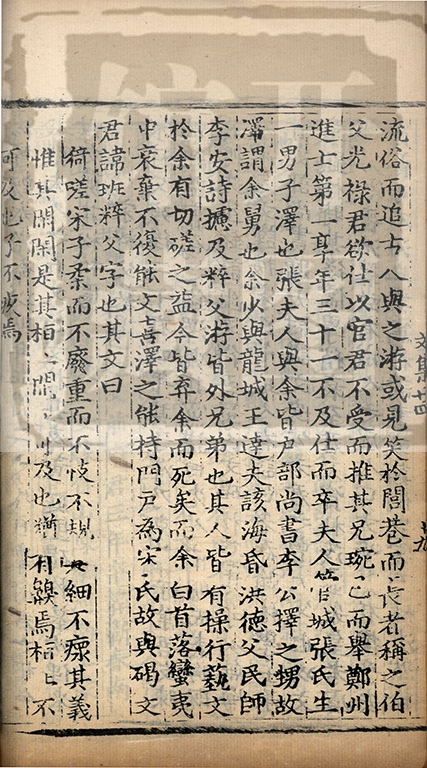 文集十四 十九
流俗而追古人與之游或見笑於閭巷而長者稱之伯
父光祿君欲仕以官君不受而推其兄琬已而舉鄭州
進士第一享年三十一不及仕而卒夫人管城張氏生
一男子澤也張夫人與余皆戶部尚書李公擇之甥故
澤謂余舅也余少與龍城王達夫該海昏洪德父民師
李安詩攄及粹父游皆外兄弟也其人皆有操行藝文
於余有切磋之益今皆弃余而死矣而余白首落蠻夷
中衰棄不復能文喜澤之能持門戶為宋氏故與碣文
君諱班粹父字也其文曰
猗嗟宋子柔而不廢重而不忮不規細不瘝其義
惟其閑閑是其桓閑可及也猶有焉桓不
可及也予不疚焉